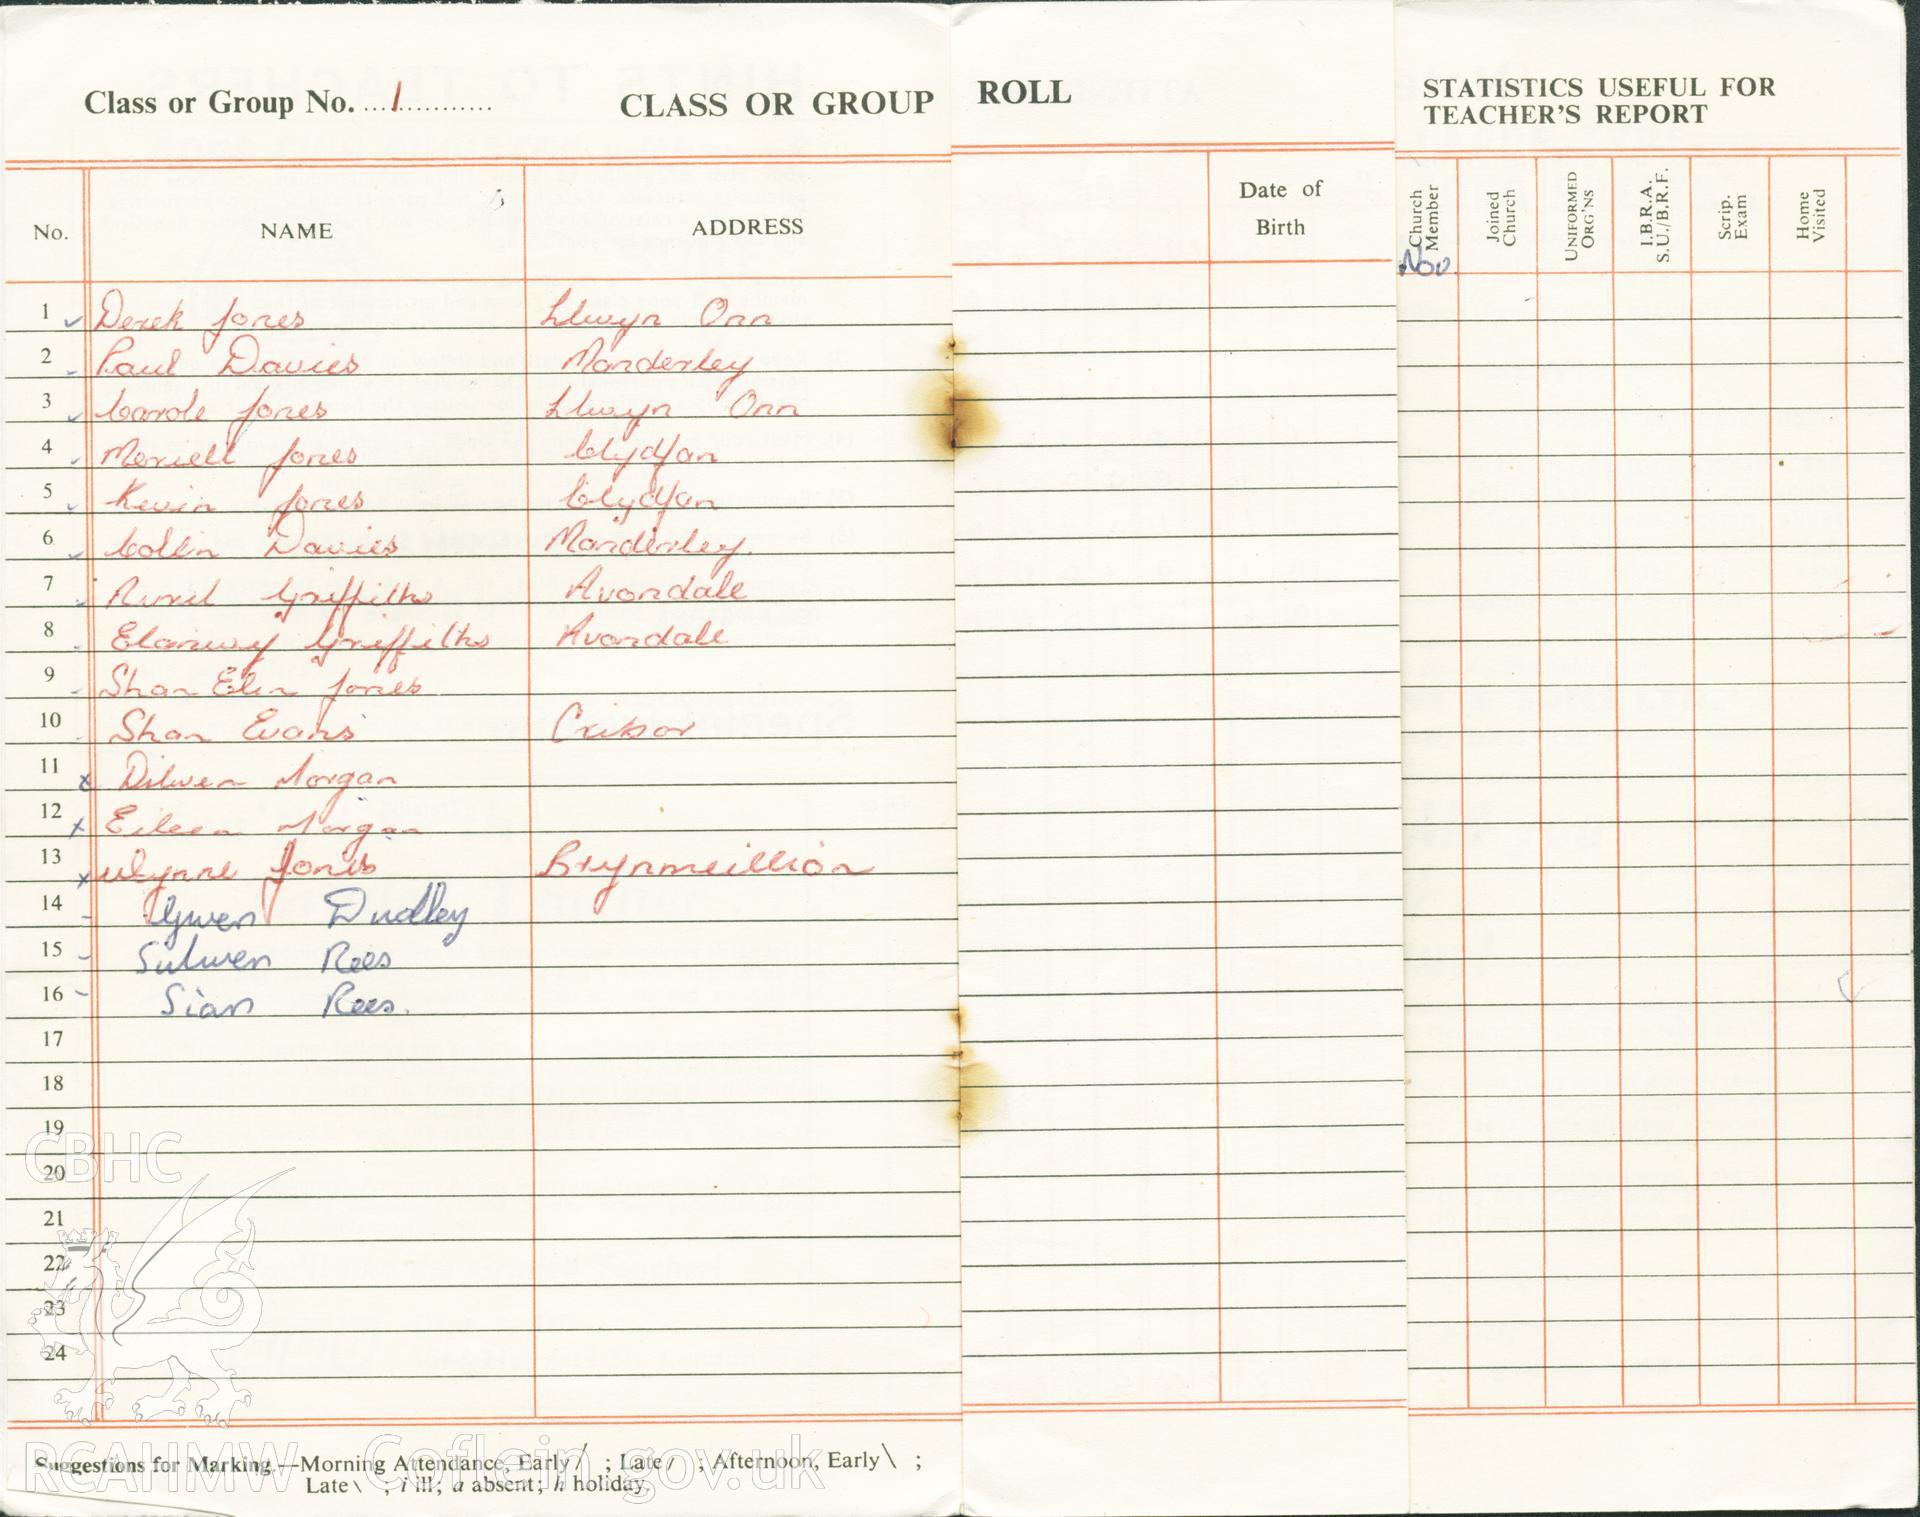 Class or Group No. 1 CLASS OR GROUP ROLL STATISTICS USEFUL FOR
TEACHER'S REPORT
No. NAME ADDRESS Date of Birth Church Member Joined Church UNIFORMED ORG'NS I.B.R.A. S.U./B.R.F. Scrip. Exam Home Visited
Nov.
1 Derek Jones Llwyn Onn
2 Paul Davies Manderley
3 Carole Jones Llwyn Onn
4 Meriell Jones Clydfan
5 Kevin Jones Clydfan
6 Colin Davies Manderley.
7 Avril Griffiths Avondale
8 Elanwy Griffiths Avondale
9 Shan Elin Jones
10 Shan Evans Cribor
11 x Dilwen Morgan
12 x Eileen Morgan
13 x Wynne Jones Brynmeillion
14 - Gwen Dudley
15 - Sulwen Rees
16 - Sian Rees.
17
18
19
CBHC
20
21
22
23
24
RCAHMW Coflein.gov.uk
Suggestions for Marking.—Morning Attendance, Early / ; Late / ; Afternoon, Early \ ;
Late \ ; i ill; a absent; h holiday.